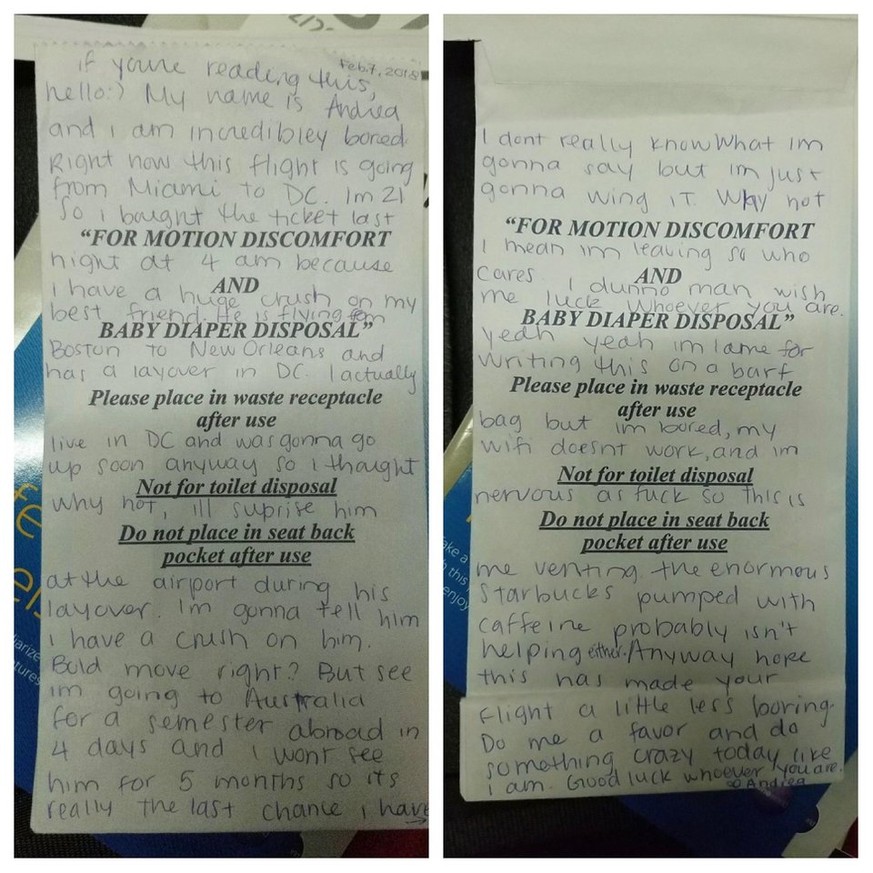 Feb. 7, 2018
if you're reading this,
hello:) My name is Andrea
and i am incredibley bored
Right now this flight is going
from Miami to DC. Im 21
So i bought the ticket last
"FOR MOTION DISCOMFORT
night at 4 am because
AND
i have a huge crush on my
best friend. He is flying from
BABY DIAPER DISPOSAL"
Boston to New Orleans and
has a layover in DC. I actually
Please place in waste receptacle
after use
live in DC and was gonna go
up soon anyway so i thought
Not for toilet disposal
why not, ill suprise him
Do not place in seat back
pocket after use
at the airport during his
layover. Im gonna tell him
i have a crush on him.
Bold move right? But see
im going to Australia
for a semester abroad in
4 days and i wont see
him for 5 months so its
really the last chance i have
→
I dont really know what im
gonna say but im just
gonna wing it. Why not
"FOR MOTION DISCOMFORT
I mean im leaving so who
AND
cares. I dunno man wish
me luck whoever you are.
BABY DIAPER DISPOSAL"
yeah yeah im lame for
writing this on a barf
Please place in waste receptacle
after use
bag but im bored, my
wifi doesnt work, and im
Not for toilet disposal
nervous as fuck so this is
Do not place in seat back
pocket after use
me venting. the enormous
Starbucks pumped with
caffeine probably isn't
helping either. Anyway hope
this has made your
flight a little less boring.
Do me a favor and do
something crazy today like
i am. Good luck whoever you are.
Andrea